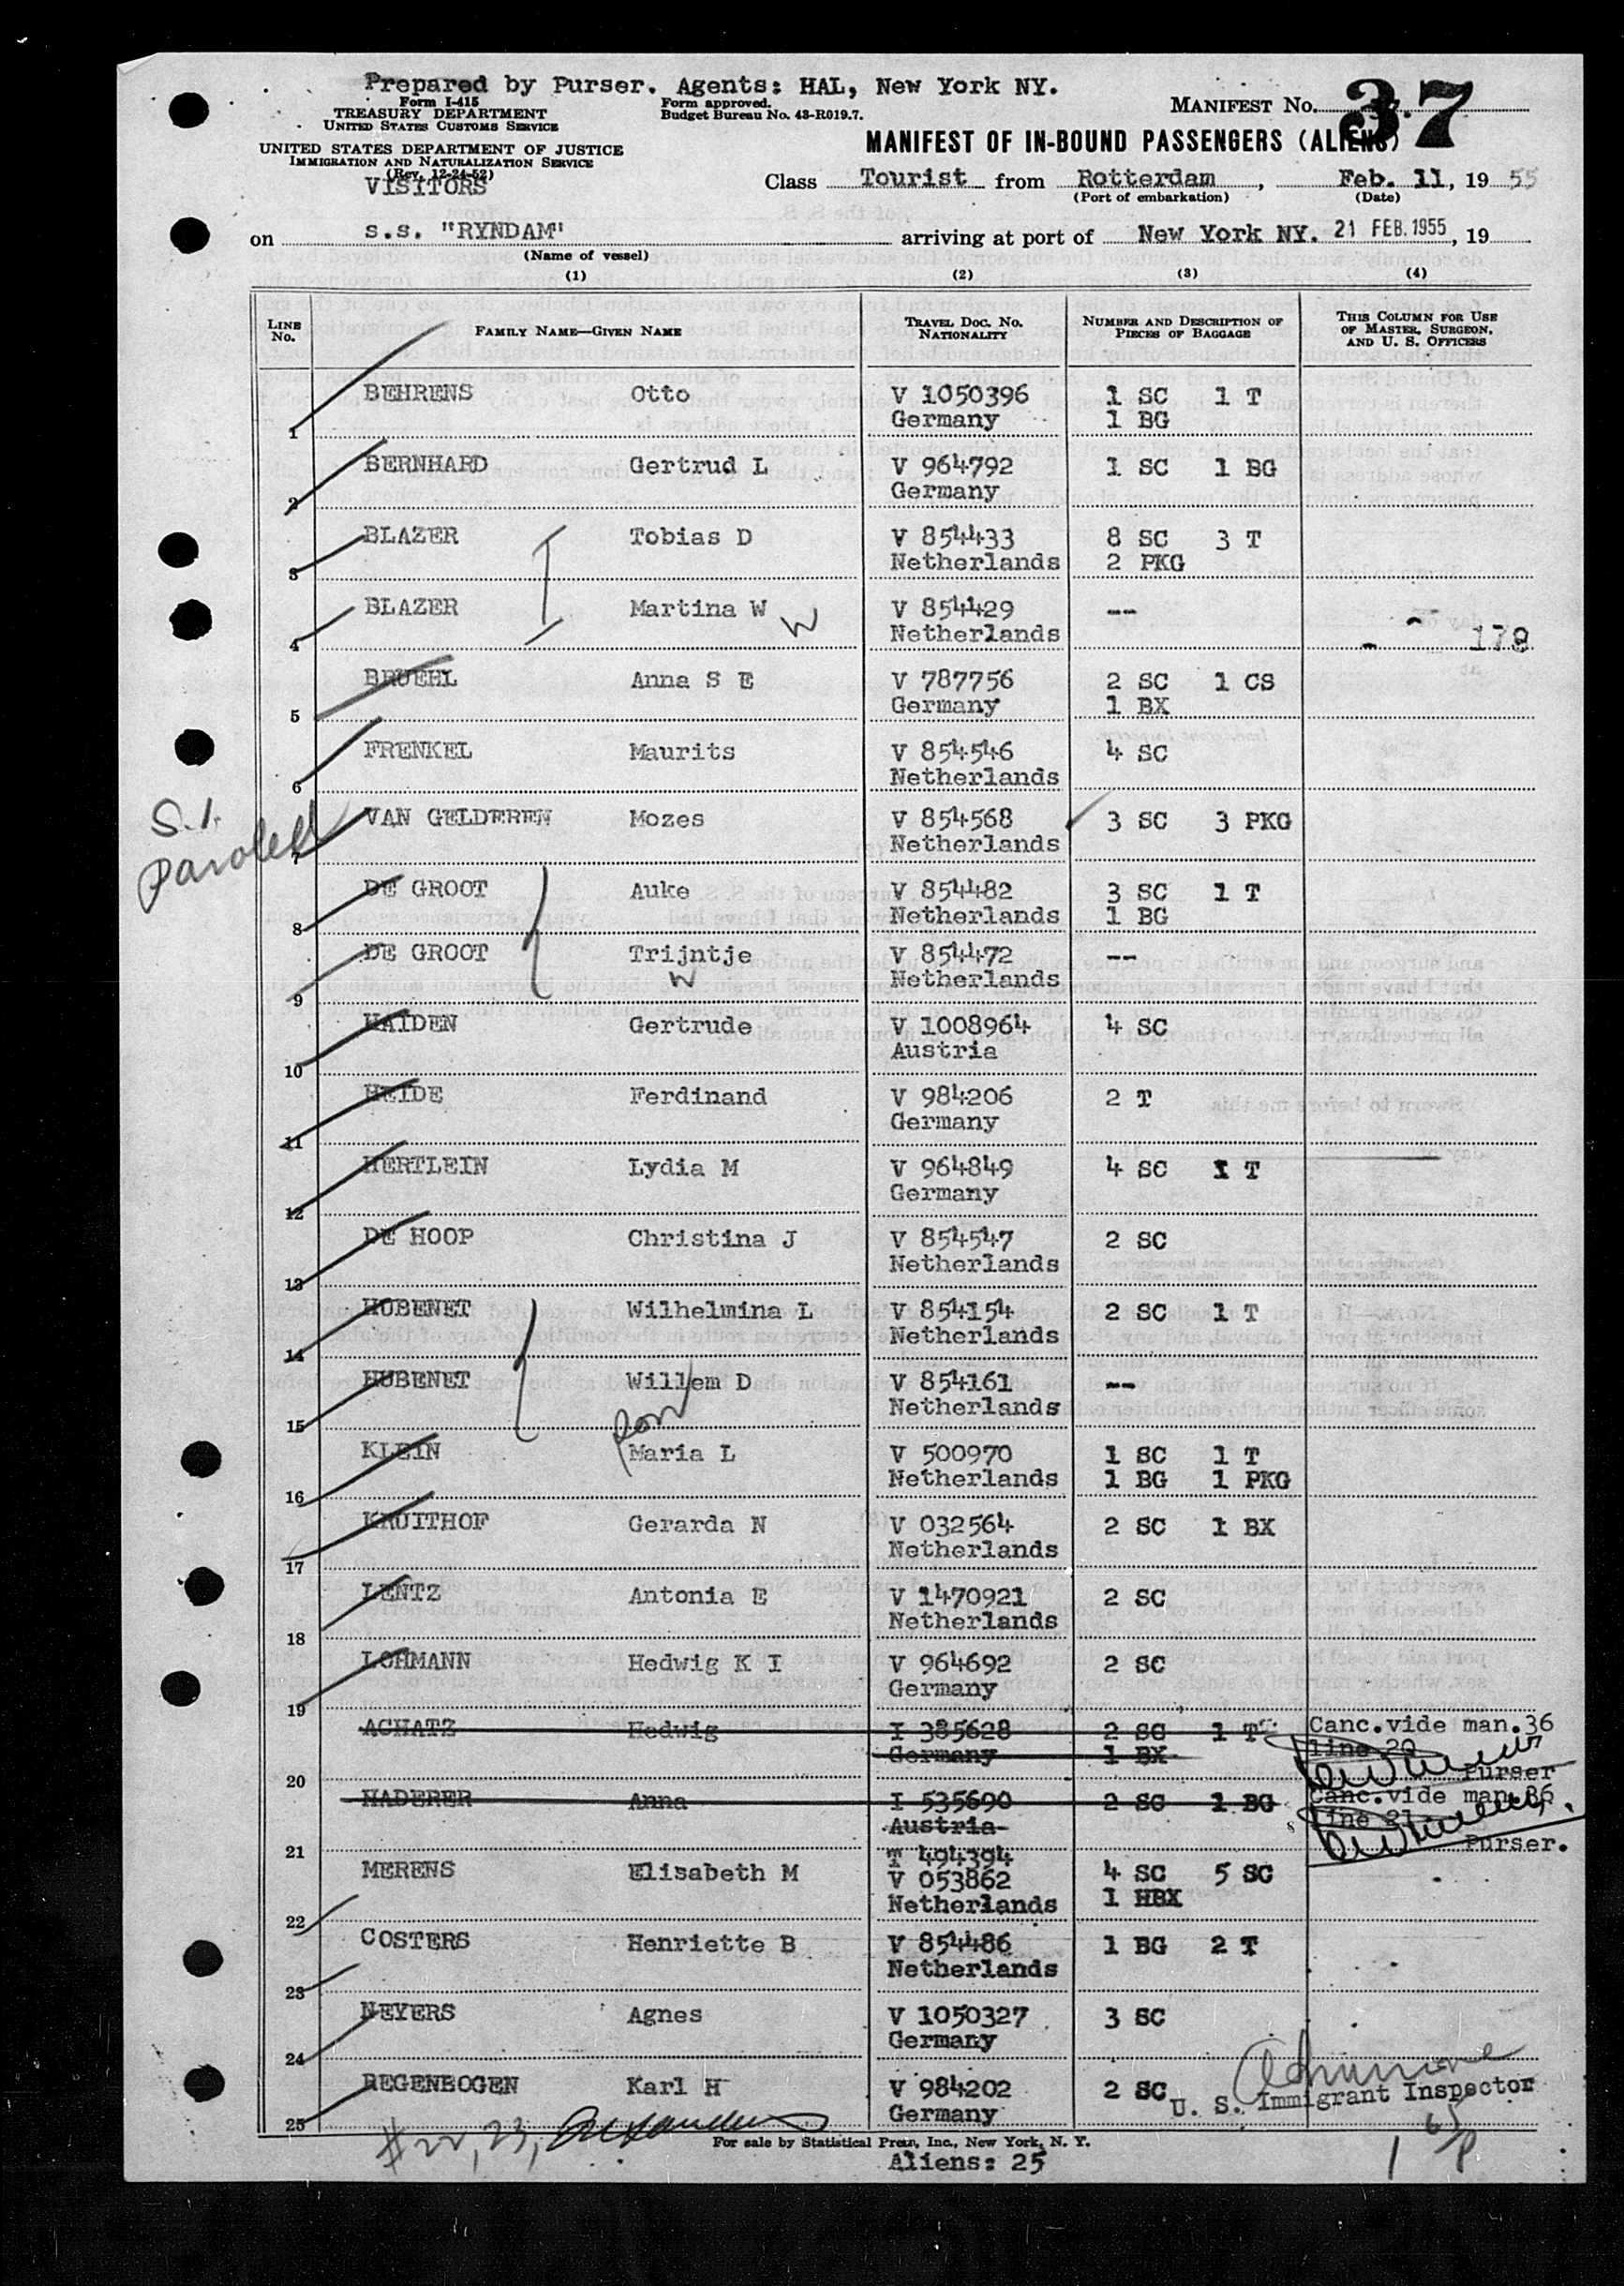 Prepared by Purser. Agents: HAL, New York NY.
Form I-415
TREASURY DEPARTMENT
UNITED STATES CUSTOMS SERVICE
Form approved.
Budget Bureau No. 43-R019.7.
MANIFEST No. 37
UNITED STATES DEPARTMENT OF JUSTICE
IMMIGRATION AND NATURALIZATION SERVICE
(Rev. 12-24-52)
VISITORS
MANIFEST OF IN-BOUND PASSENGERS (ALIENS)
Class Tourist from Rotterdam, Feb. 11, 19 55
(Port of embarkation) (Date)
on s.s. "RYNDAM" arriving at port of New York NY. 21 FEB. 1955, 19
(Name of vessel)
(1) (2) (3) (4)
LINE No. FAMILY NAME—GIVEN NAME TRAVEL DOC. No. NATIONALITY NUMBER AND DESCRIPTION OF PIECES OF BAGGAGE THIS COLUMN FOR USE OF MASTER, SURGEON, AND U. S. OFFICERS
BEHRENS Otto V 1050396 1 SC 1 T
1 Germany 1 BG
BERNHARD Gertrud L V 964792 1 SC 1 BG
2 Germany
BLAZER Tobias D V 854433 8 SC 3 T
3 Netherlands 2 PKG
BLAZER Martina W V 854429 --
W
4 Netherlands 179
BRUEHL Anna S E V 787756 2 SC 1 CS
5 Germany 1 BX
FRENKEL Maurits V 854546 4 SC
6 Netherlands
S.I. paroled
VAN GELDEREN Mozes V 854568 3 SC 3 PKG
7 Netherlands
DE GROOT Auke V 854482 3 SC 1 T
8 Netherlands 1 BG
DE GROOT Trijntje V 854472 --
W
9 Netherlands
HAIDEN Gertrude V 1008964 4 SC
10 Austria
HEIDE Ferdinand V 984206 2 T
11 Germany
HERTLEIN Lydia M V 964849 4 SC 1 T
12 Germany
DE HOOP Christina J V 854547 2 SC
13 Netherlands
HUBENET Wilhelmina L V 854154 2 SC 1 T
14 Netherlands
HUBENET Willem D V 854161 --
son
15 Netherlands
KLEIN Maria L V 500970 1 SC 1 T
16 Netherlands 1 BG 1 PKG
KRUITHOF Gerarda N V 032564 2 SC 1 BX
17 Netherlands
LENTZ Antonia E V 1470921 2 SC
18 Netherlands
LOHMANN Hedwig K I V 964692 2 SC
19 Germany
ACHATZ Hedwig I 385628 2 SC 1 T Canc.vide man.36
Germany 1 BX line 20
20 Purser
HADERER Anna I 535690 2 SC 1 BG Canc.vide man.36
Austria line 21
21 Purser.
T 494394
MERENS Elisabeth M V 053862 4 SC 5 SC
22 Netherlands 1 HBX
COSTERS Henriette B V 854486 1 BG 2 T
23 Netherlands
NEYERS Agnes V 1050327 3 SC
24 Germany
REGENBOGEN Karl H V 984202 2 SC
25 Germany
U. S. Immigrant Inspector
#22, 23,
For sale by Statistical Press, Inc., New York, N. Y.
Aliens: 25